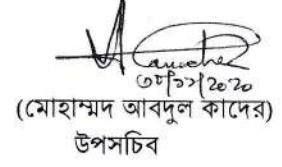 ৩০/১১/২০২০
(মোহাম্মদ আবদুল কাদের)
উপসচিব